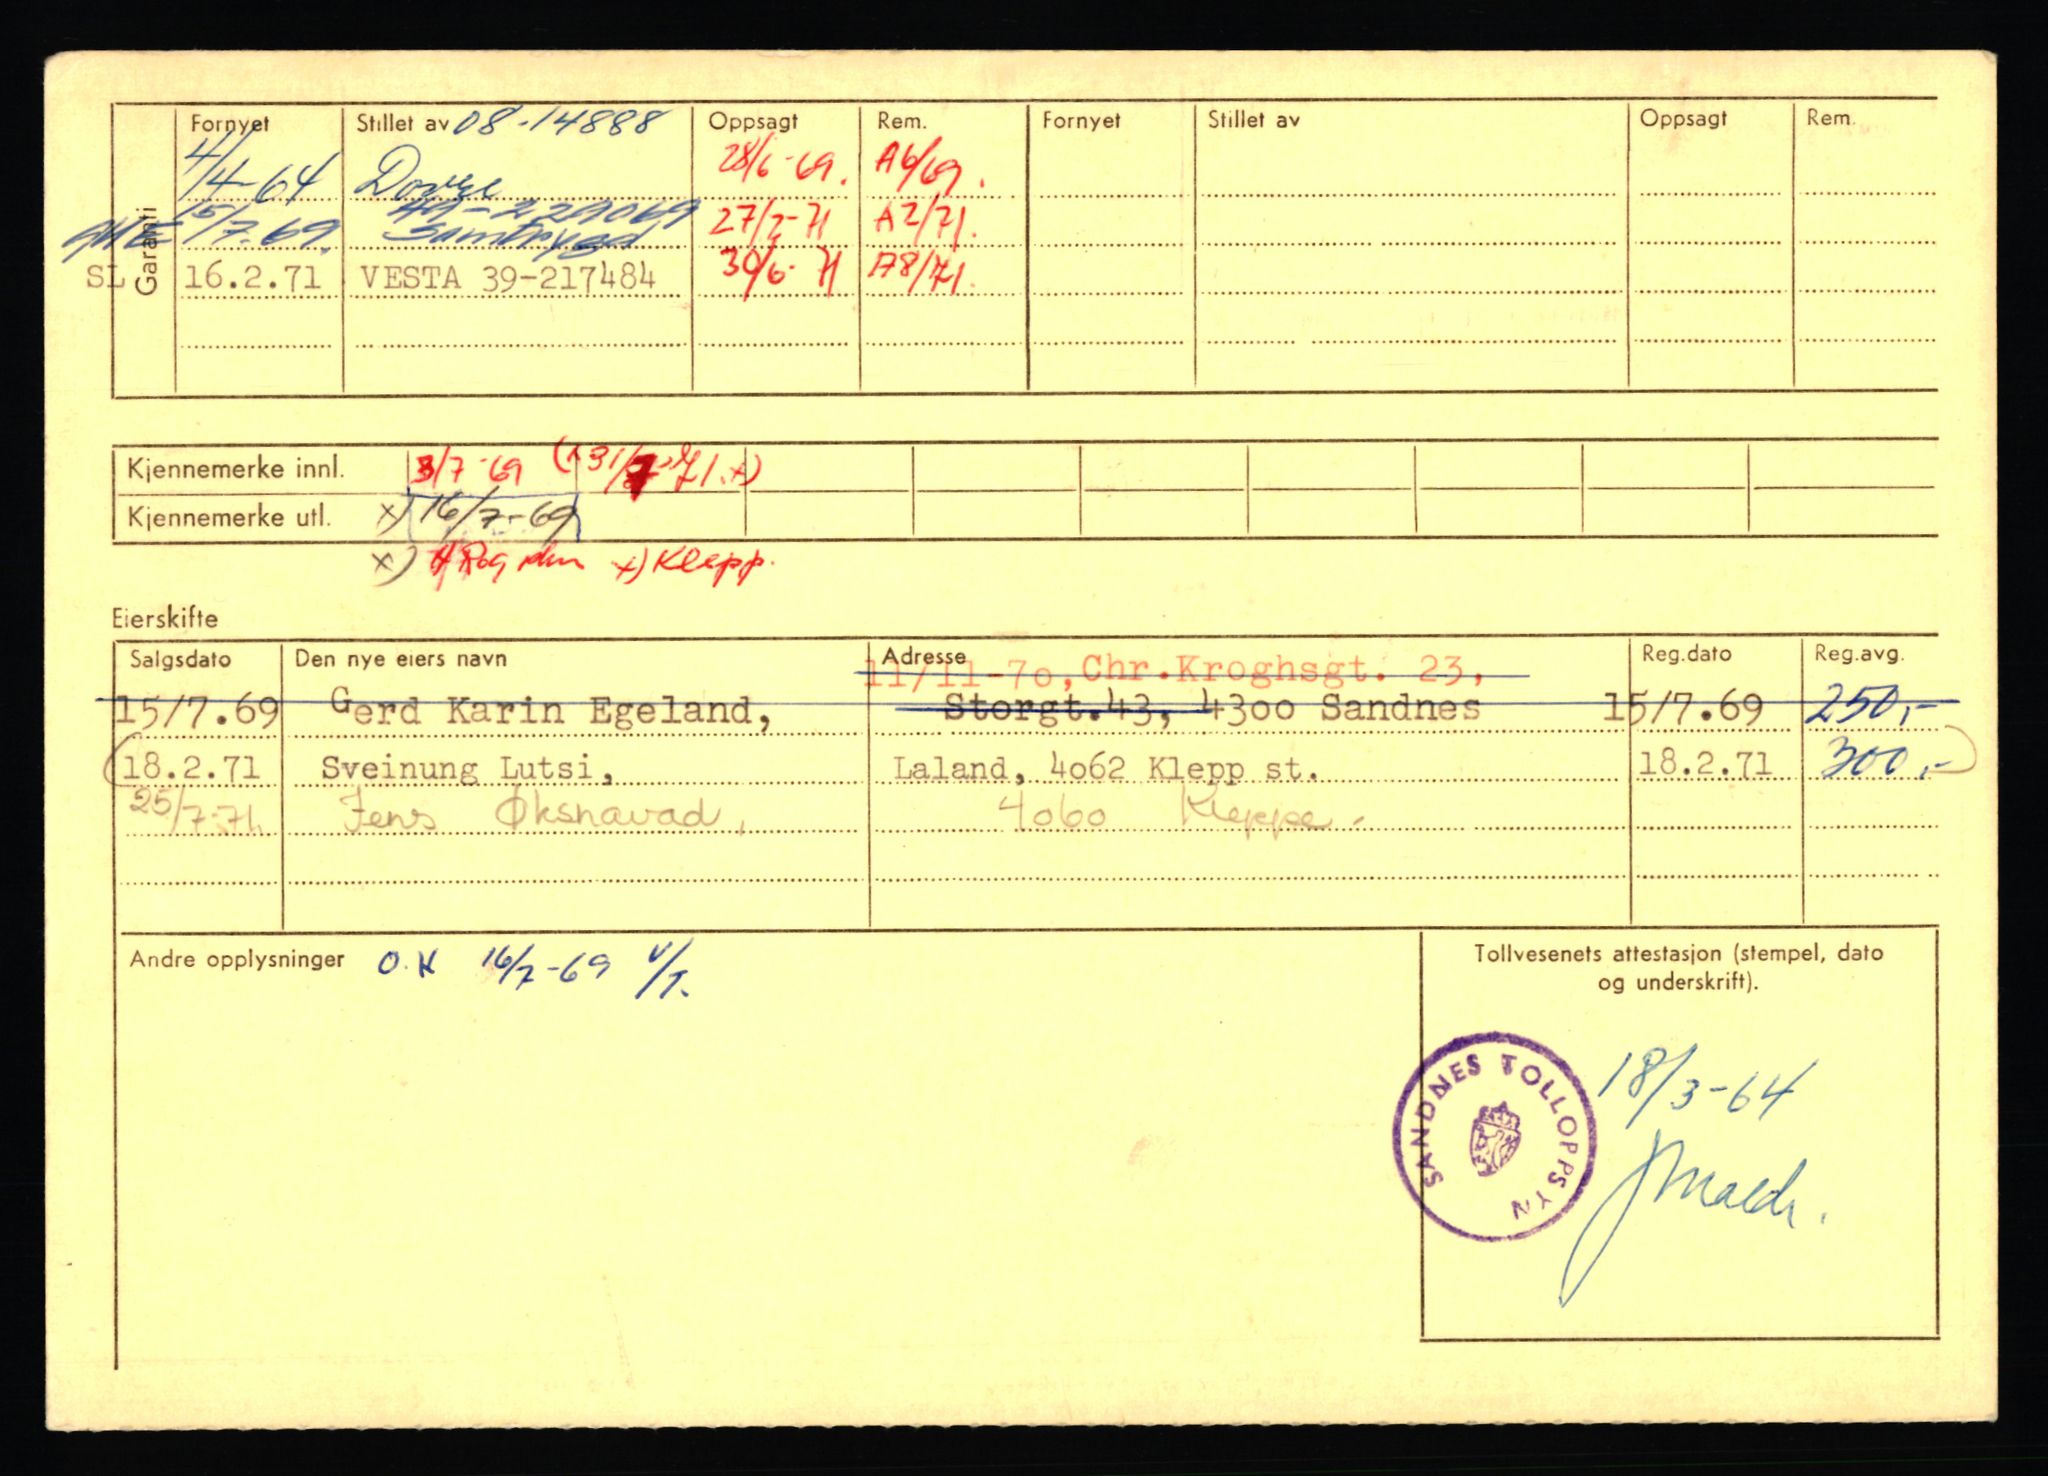 Garanti
Fornyet Stillet av 08-14888 Oppsagt Rem. Fornyet Stillet av Oppsagt Rem.
4/4-64 Dovre 28/6-69. A6/69.
15/7.69. 49-229069 Samtrygd 27/2-71 A2/71.
SL 16.2.71 VESTA 39-217484 30/6-71 A8/71.
Kjennemerke innl. 3/7-69 31/7-71. x)
Kjennemerke utl. x) 16/7-69
x) x) Klepp.
Eierskifte
Salgsdato Den nye eiers navn Adresse Reg.dato Reg.avg.
11/11-70, Chr.Kroghsgt. 23,
15/7.69 Gerd Karin Egeland, Storgt.43, 4300 Sandnes 15/7.69 250,-
18.2.71 Sveinung Lutsi, Laland, 4062 Klepp st. 18.2.71 300,-
25/7-71. Jens Øksnavad, 4060 Kleppe.
Andre opplysninger O.K 16/7-69
Tollvesenets attestasjon (stempel, dato
og underskrift).
SANDNES TOLLOPPSYN
18/3-64